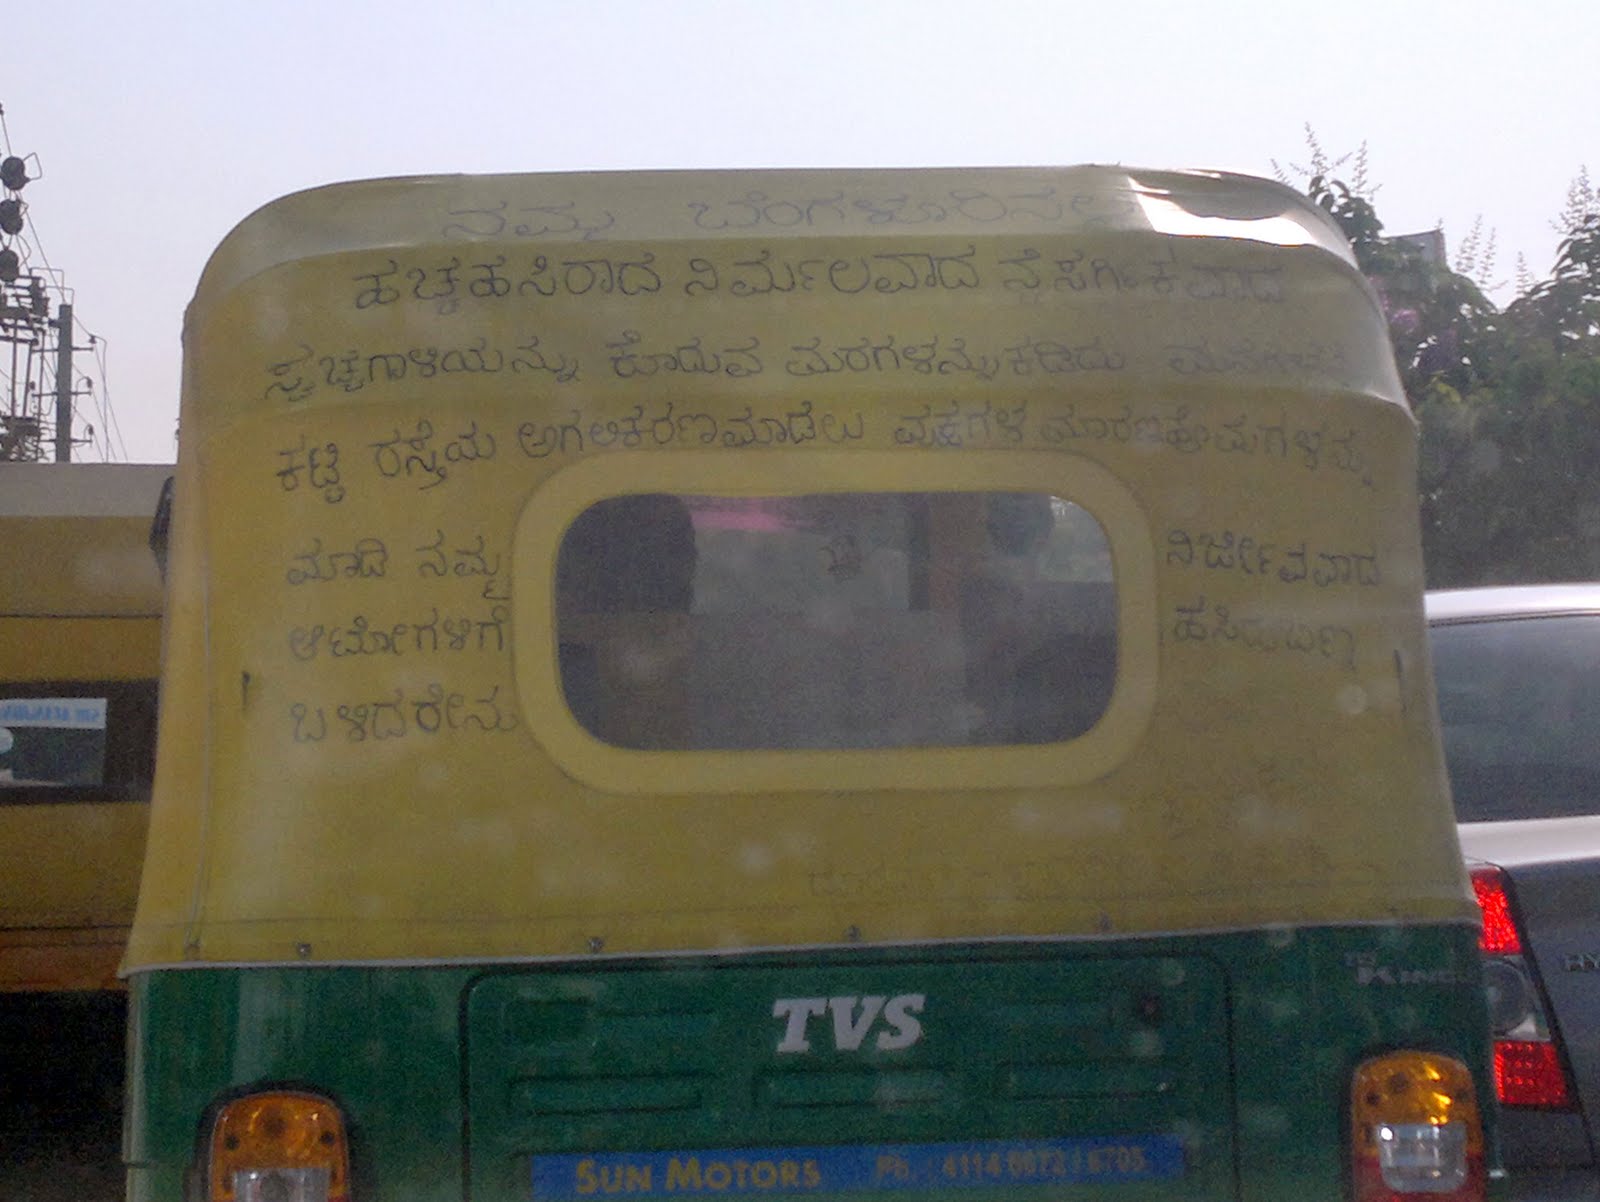 ನಮ್ಮ ಬೆಂಗಳೂರಿನಲ್ಲಿ
ಹಚ್ಚಹಸಿರಾದ ನಿರ್ಮಲವಾದ ನೈಸರ್ಗಿಕವಾದ
ಸ್ವಚ್ಛಗಾಳಿಯನ್ನು ಕೊಡುವ ಮರಗಳನ್ನು ಕಡಿದು
ಕಟ್ಟಿ ರಸ್ತೆಯ ಅಗಲಿಕರಣಮಾಡಲು ವೃಕ್ಷಗಳ ಮಾರಣಹೋಮಗಳನ್ನು
ಮಾಡಿ ನಮ್ಮ ನಿರ್ಜೀವವಾದ
ಆಟೋಗಳಿಗೆ ಹಸಿರುಬಣ್ಣ
ಬಳಿದರೇನು
TVS
KING
SUN MOTORS Ph. :
HY